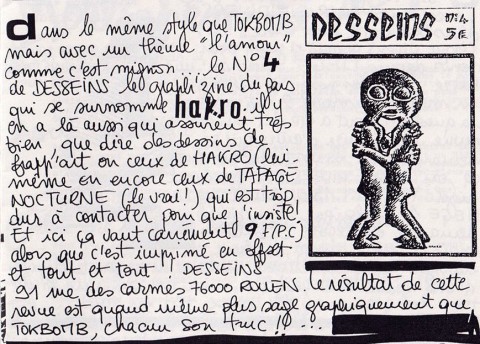 dans le même style que TOKBOMB
mais avec un thème "l'amour"
comme c'est mignon... le N° 4
de DESSEINS le graphi'zine du gars
qui se surnomme hakro. il y
en a là aussi qui assurent très
bien, que dire des dessins de
frapp'art ou ceux de HAKRO (lui-
même ou encore ceux de TAPAGE
NOCTURNE (le vrai!) qui est trop
dur à contacter pour que j'insiste!
Et ici ça vaut carrément 9 F(P.C)
alors que c'est imprimé en offset
et tout et tout ! DESSEINS
91 rue des carmes 76000 ROUEN. le résultat de cette
revue est quand même plus sage graphiquement que
TOKBOMB, chacun son truc !! ...
DESSEINS N:4